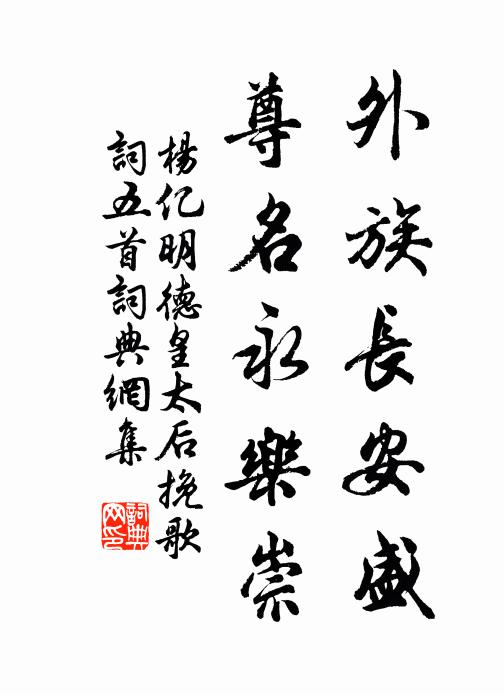 外族長安盛
尊名永樂崇
楊亿明德皇太后挽歌
詞五首詞典網集
詞典
网印